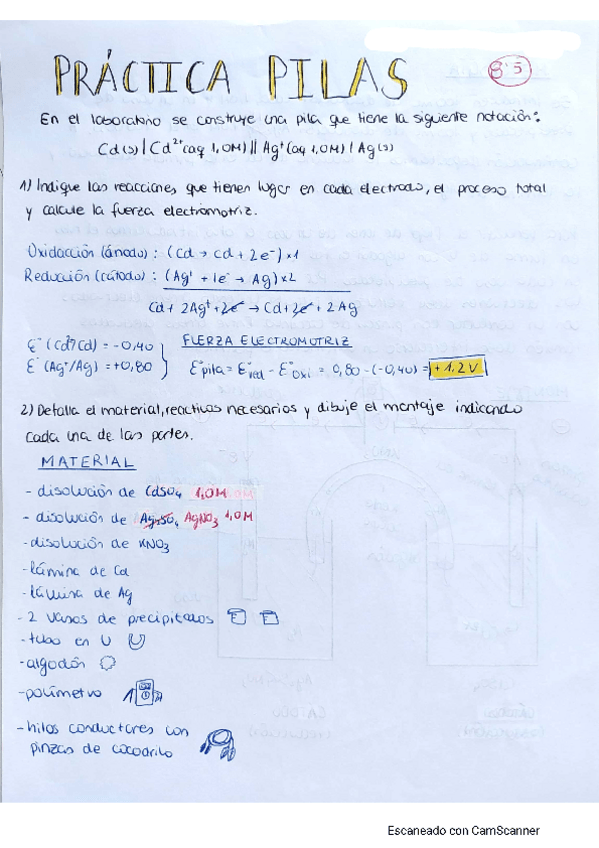 PRÁCTICA PILAS
8'5
En el laboratorio se construye una pila que tiene la siguiente notación:
Cd(s) | Cd²⁺(aq 1,0M) || Ag⁺(aq 1,0M) | Ag(s)
1) Indique las reacciones que tienen lugar en cada electrodo, el proceso total
y calcule la fuerza electromotriz.
Oxidación (ánodo) : (Cd → Cd + 2e⁻) x1
Reducción (cátodo) : (Ag⁺ + 1e⁻ → Ag) x2
Cd + 2Ag⁺ + 2e⁻ → Cd + 2e⁻ + 2Ag
E°(Cd²⁺/Cd) = -0,40
FUERZA ELECTROMOTRIZ
E°(Ag⁺/Ag) = +0,80
E°pila = E°red - E°oxi = 0,80 - (-0,40) = +1,2V
2) Detalla el material, reactivos necesarios y dibuje el montaje indicando
cada una de las partes.
MATERIAL
- disolución de CdSO₄ 1,0M
- disolución de Ag₂SO₄ AgNO₃ 1,0M
- disolución de KNO₃
- lámina de Cd
- lámina de Ag
- 2 vasos de precipitados
- tubo en U
- algodón
- polímetro
- hilos conductores con
pinzas de cocodrilo
Escaneado con CamScanner